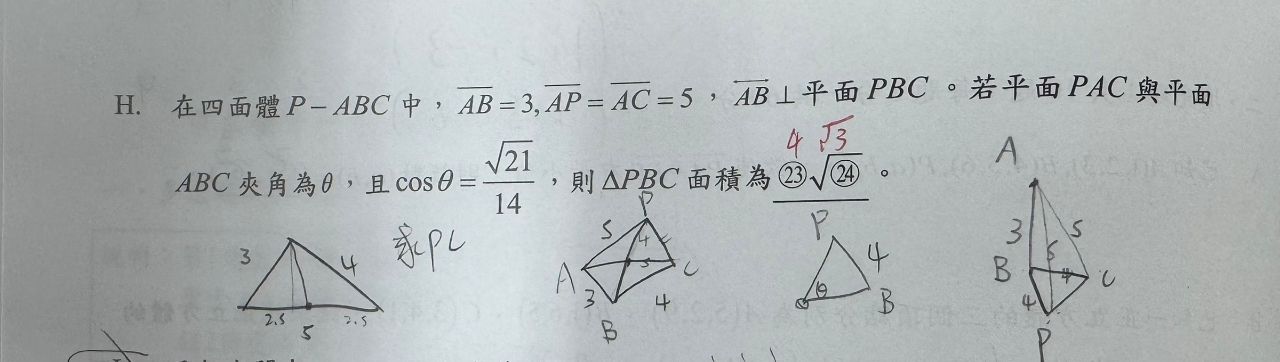 H. 在四面體 P－ABC 中，AB = 3, AP = AC = 5，AB ⊥ 平面 PBC。若平面 PAC 與平面
4 √3
ABC 夾角為 θ，且 cos θ = √21/14，則 ΔPBC 面積為 ㉓√㉔。
3 4 2.5 2.5 5
求PC
P 5 4 5 A C 3 4 B
P 4 θ B
A 3 5 5 B 4 C 4 P